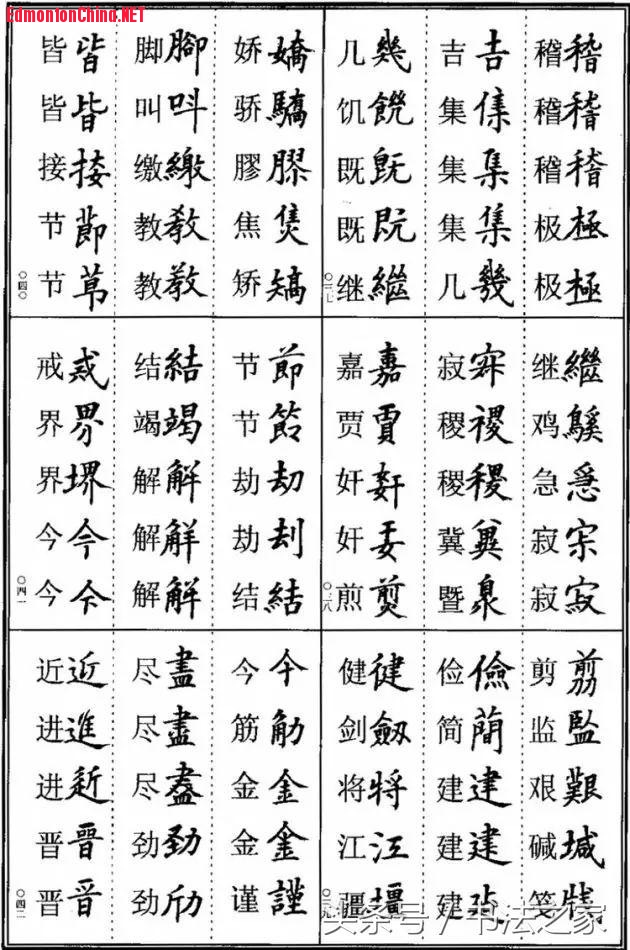 EdmontonChina.NET
稽稽 稽稽 稽稽 极極 极極
吉吉 集 集集 集集 几幾
几幾 饥饑 既既 既既 继繼
〇三七
继繼 鸡 急急 寂 寂寂
寂 稷稷 稷稷 冀冀 暨
嘉嘉 贾賈 奸奸 奸 煎
〇三八
剪剪 监監 艰艱 碱堿 笺牋
俭儉 简簡 建建 建建 建
健健 剑劔 将将 江江 疆壃
〇三九
娇嬌 骄驕 膠膠 焦 矫
脚腳 叫叫 缴繳 教教 教教
皆皆 皆皆 接接 节節 节
〇四〇
节節 节 劫劫 劫刦 结結
结結 竭竭 解解 解觧 解觧
戒戒 界界 界堺 今今 今
〇四一
今今 筋 金金 金金 谨謹
尽盡 尽盡 尽 劲勁 劲
近近 进進 进 晋晉 晋晋
〇四二
头条号／书法之家